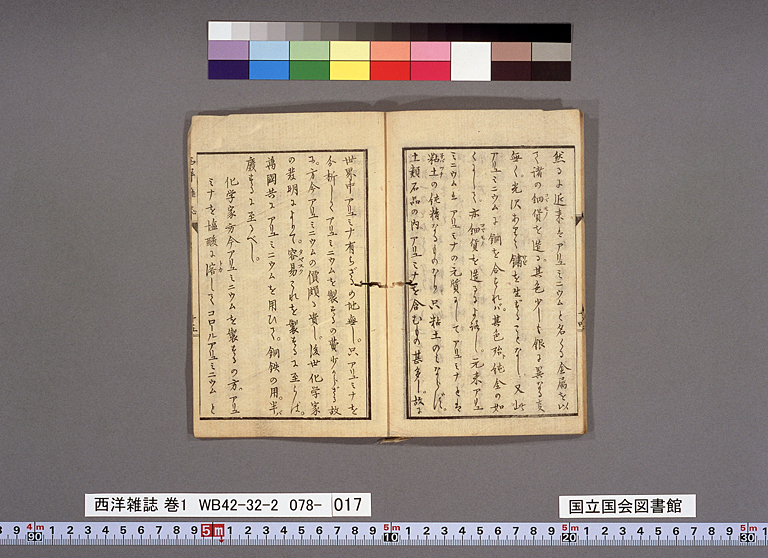 然るに近来はアリユミニウムと名くる金属を以
て諸の佃貨を造る。其色少しも銀に異なる更
無く。光沢あせて錆を生ずることなし。又此
アリユミニウムに銅を合すれバ其色殆純金の如
くにして。亦佃貨を造るに好し。元来アリユ
ミニウムは アリユミナの元質にして アリユミナとは
粘土の使精なるものなり。只粘土のみならず。
土類石品の内。アリユミナを含むもの甚多し。故に
世界中アリユミナ有らざるの地無し。只アリユミナを
分析して アリユミニウムを製するの費少からざる故
に。方今アリユミニウムの價頗る貴し。後世化学家
の發明によりて。容易くこれを製するに至らば。
萬国共に アリユミニウムを用ひて。銅鉄の用。半バ
廃するに至るべし。
化学家方今アリユミニウムを製するの方。アリユ
ミナを塩酸に溶して コロールアリユミニウム と
西洋雑誌 巻1 WB42-32-2 078-017
国立国会図書館